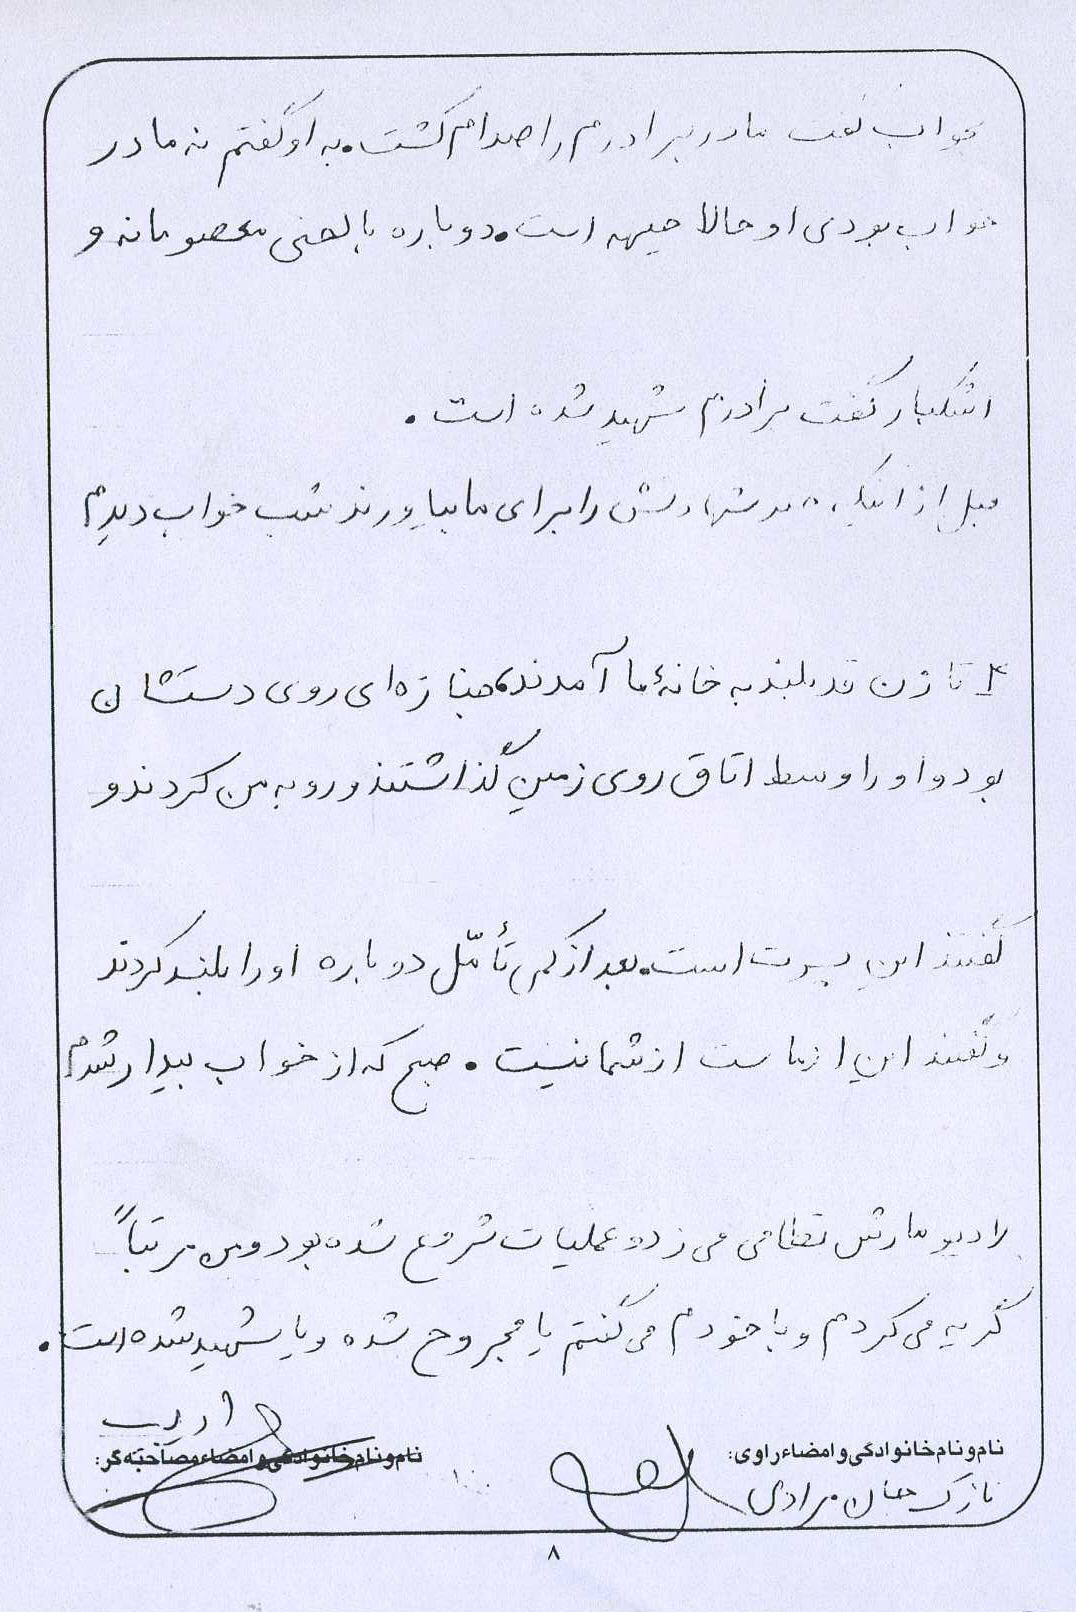 خواب گفت مادر برادرم را صدام کشت. به او گفتم نه مادر
خواب بودی او حالا جبهه است. دوباره با لحنی معصومانه و
اشکبار گفت برادرم شهید شده است.
قبل از اینکه خبر شهادتش را برای ما بیاورند شب خواب دیدم
۴ تا زن قدبلند به خانهٔ ما آمدند، جنازه‌ای روی دستشان
بود و او را وسط اتاق روی زمین گذاشتند و رو به من کردند و
گفتند این پسرت است. بعد از کمی تأمّل دوباره او را بلند کردند
و گفتند این از ماست از شما نیست. صبح که از خواب بیدار شدم
رادیو مارش نظامی می زد و عملیات شروع شده بود و من مرتباً
گریه می کردم و با خودم می گفتم یا مجروح شده و یا شهید شده است.
نام و نام خانوادگی و امضاء راوی: نام و نام خانوادگی و امضاء مصاحبه گر:
نازک جهان مرادی
۸